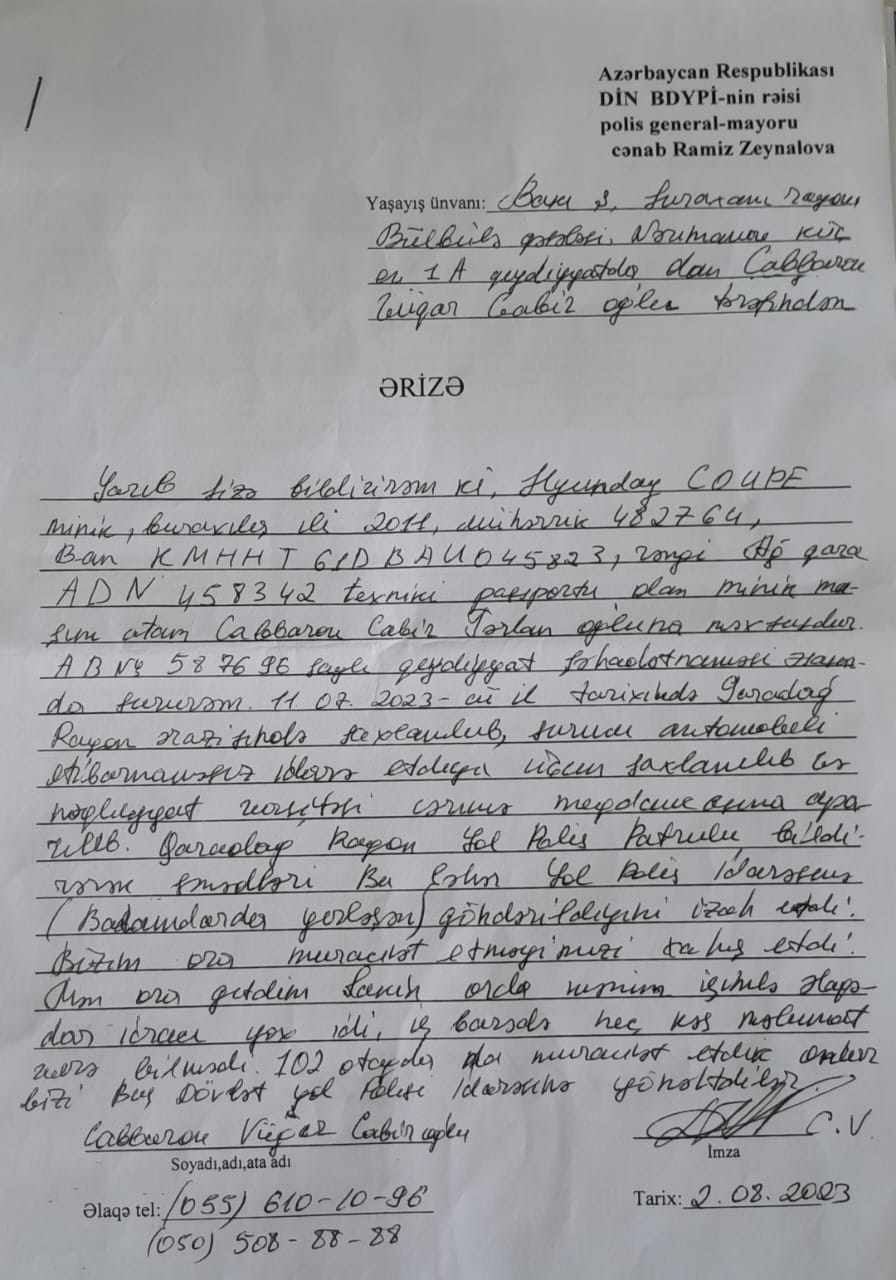 Azərbaycan Respublikası
DİN BDYPİ-nin rəisi
polis general-mayoru
cənab Ramiz Zeynalova
Yaşayış ünvanı: Bakı ş, Suraxanı rayonu,
Bülbülə qəsəbəsi, Nərimanov küç
ev 1 A qeydiyyatda olan Cabbarov
Vüqar Cabir oğlu tərəfindən
ƏRİZƏ
Yazıb sizə bildirirəm ki, Hyunday COUPE
minik, buraxılış ili 2011, mühərrik 482764,
Ban KMHHT61DBAU045823, rəngi Ağ qara
ADN 458342 texniki pasportu olan minik ma-
şını atam Cabbarov Cabir Tərlan oğluna məxsusdur.
AB № 587696 saylı qeydiyyat şəhadətnaməsi əsasın-
da sürürəm. 11 07. 2023-cü il tarixində Qaradağ
Rayon ərazisində saxlanılıb, sürücü avtomobili
etibarnaməsiz idarə etdiyi üçün saxlanılıb və
nəqliyyat vasitəsi cərimə meydançasına apa-
rılıb. Qaradağ Rayon Yol Polis Patrulu bildi-
rərək sənədləri Bakı şəhər Yol Polis idarəsinə
(Badamdarda yerləşən) göndərildiyini izah etdi.
Bizim ora müraciət etməyimizi təhış etdi.
Mən ora getdim lakin orda mənim işimlə əlaqə-
dar icraçı yox idi, iş barədə heç kəs məlumat
verə bilmədi. 102 otaqda da müraciət etdik onlar
bizi Baş Dövlət yol Polisi idarəsinə yönəltdilər.
Cabbarov Vüqar Cabir oğlu C.V.
Soyadı,adı,ata adı İmza
Əlaqə tel: (055) 610-10-96 Tarix: 2.08.2023
(050) 508-88-88